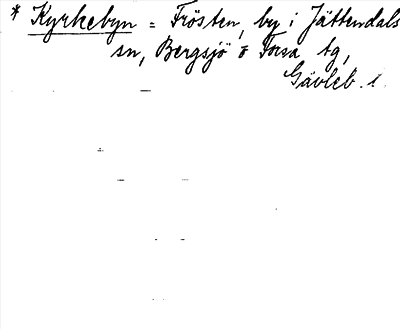 * Kyrkebyn = Frösten, by i Jättendals
sn, Bergsjö o Forsa tg,
Gävleb. l.